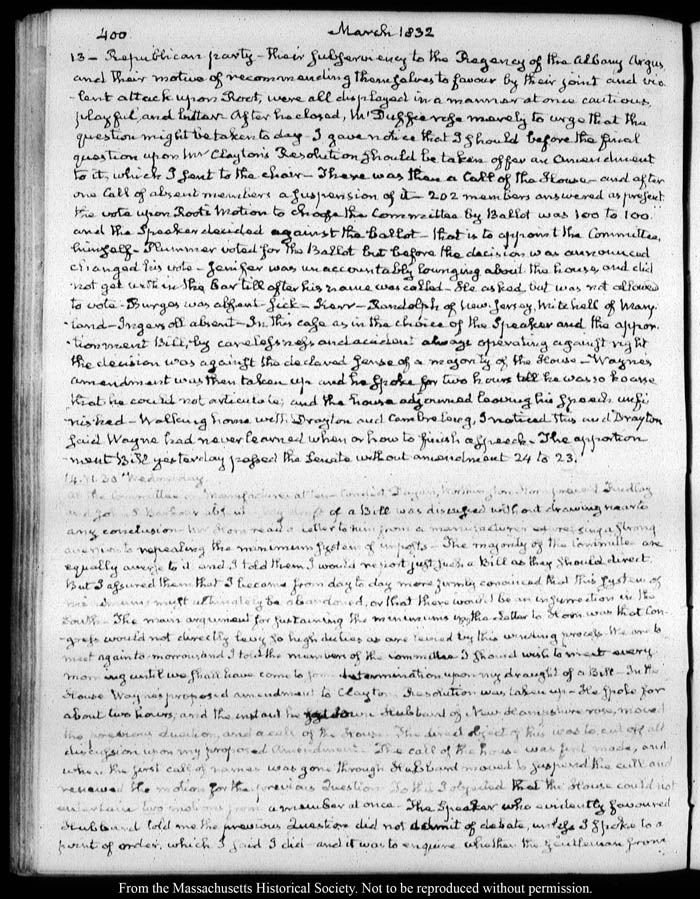 400
March 1832
13 – Republican party – their subserviency to the Regency of the Albany Argus,
and their motive of recommending themselves to favour by their joint and vio
-lent attack upon Root, were all displayed in a manner at once cautious,
playful, and bitter. After he closed, Mr Duffie rose merely to urge that the
question might be taken to day – I gave notice that I should before the final
question upon Mr Clayton's Resolution should be taken offer an amendment
to it, which I sent to the chair – There was then a Call of the House – and after
one Call of absent members a suspension of it – 202 members answered as present.
The vote upon Root's motion to choose the Committee by Ballot was 100 to 100.
and the Speaker decided against the Ballot – that is to appoint the Committee,
himself – Plummer voted for the Ballot but before the decision was announced
changed his vote – Jenifer was unaccountably lounging about the house, and did
not get within the Bar till after his name was called – He asked but was not allowed
to vote – Burges was absent – sick – Kerr – Randolph of New Jersey, Mitchell of Mary
-land – Ingersoll absent – In this case as in the choice of the Speaker and the appor
-tionment Bill, by carelessness and accident always operating against right
the decision was against the declared sense of a majority of the House – Wayne's
amendment was then taken up and he spoke for two hours till he was so hoarse
that he could not articulate, and the house adjourned leaving his speech unfi
nished – Walking home with Drayton and Cambreleng, I noticed this and Drayton
said Wayne had never learned when or how to finish a speech – The apportion
-ment Bill yesterday passed the Senate without amendment 24 to 23.
14. Wednesday.
At the Committee on Manufactures Condict Dayan, Worthington Horn present Findlay
and John S Barbour absent – my draft of a Bill was discussed without drawing near to
any conclusion Mr Horn read a letter to him from a manufacturer expressing a strong
aversion to repealing the minimum system of imposts – The majority of the Committee are
equally averse to it and I told them I would report just such a Bill as they should direct.
But I assured them that I became from day to day more firmly convinced that this system of
minimums must ultimately be abandoned, or that there would be an insurrection in the
South – The main argument for sustaining the minimums in the letter to Horn was that Con
-gress would not directly levy so high duties as are levied by this winding process. We are to
meet again to-morrow, and I told the members of the Committee I should wish to meet every
morning until we shall have come to some determination upon my draught of a Bill – In the
House Wayne's proposed amendment to Clayton Resolution was taken up – He spoke for
about two hours, and the instant he sat down Hubbard of New Hampshire rose, moved
the previous question, and a call of the House. The direct object of this was to cut off all
discussion upon my proposed Amendment. The call of the house was first made, and
when the first call of names was gone through Hubbard moved to suspend the call and
renewed the motion for the previous Question To this I objected that the House could not
entertain two motions from a member at once – The Speaker who evidently favoured
Hubbard told me the previous Question did not admit of debate, unless I spoke to a
point of order, which I said I did – and it was to enquire whether the gentleman from
From the Massachusetts Historical Society. Not to be reproduced without permission.